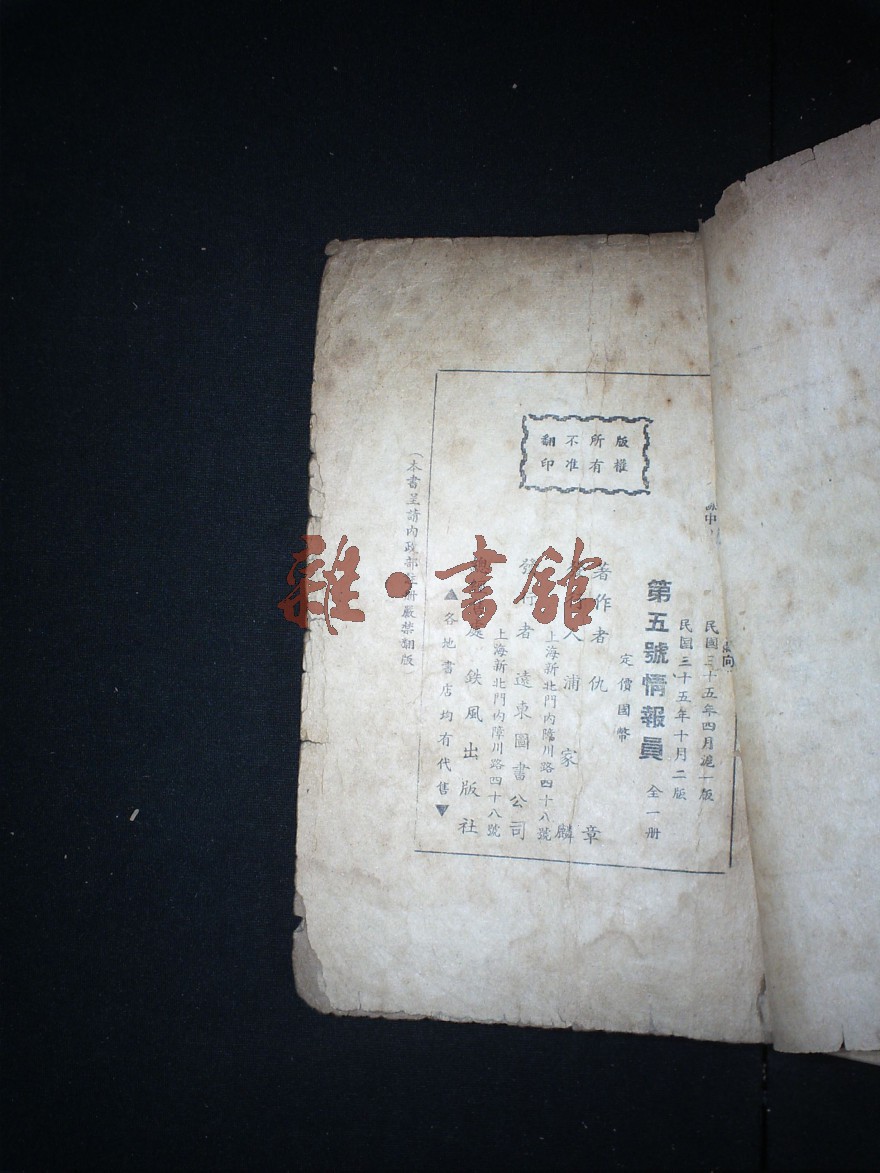 版權
所有
不准
翻印
民國三十五年四月滬一版
民国三十五年十月二版
第五號情報員 全一册
定價國幣
著作者 仇章
人 浦家麟
上海新北門內障川路四十八號
發行者 遠東圖書公司
上海新北門內障川路四十八號
處 鉄風出版社
▲各地書店均有代售▼
(本書呈請內政部註册嚴禁翻版)
雜·書館